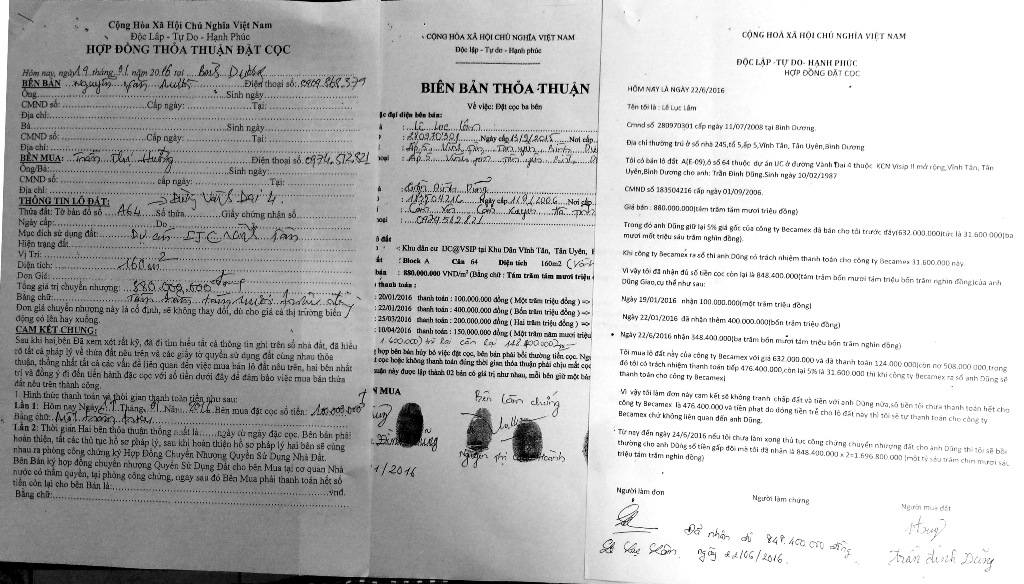 Cộng Hòa Xã Hội Chủ Nghĩa Việt Nam
Độc Lập - Tự Do - Hạnh Phúc
HỢP ĐỒNG THỎA THUẬN ĐẶT CỌC
Hôm nay, ngày 19 tháng 01 năm 2016 tại Bình Dương
BÊN BÁN Điện thoại số: 0969.868.379
Ông Sinh ngày
CMND số: Cấp ngày: Tại:
Địa chỉ:
Bà Sinh ngày
CMND số: Cấp ngày: Tại:
Địa chỉ:
BÊN MUA: Trần Thị Hường Điện thoại số: 0974.512.821
Ông/Bà: Sinh ngày:
CMND số: cấp ngày: Tại:
Địa chỉ:
THÔNG TIN LÔ ĐẤT: Đường Vành Đai 4
Thửa đất: Tờ bản đồ số A64 Số thửa Giấy chứng nhận số
Ngày cấp: Do
Mục đích sử dụng đất: Dự án
Hiện trạng đất
Vị Trí:
Diện tích: 160m2
Đơn Giá:
Tổng giá trị chuyển nhượng: 880.000.000 đồng
Bằng chữ: Tám trăm tám mươi triệu
Đơn giá chuyển nhượng này là cố định, sẽ không thay đổi, dù cho giá cả thị trường biến
động có lên hay xuống.
CAM KẾT CHUNG:
Sau khi hai bên Đã xem xét rất kỹ, đã đi tìm hiểu tất cả thông tin ghi trên sổ nhà đất, đã hiểu
rõ tất cả pháp lý về thửa đất nêu trên và các giấy tờ quyền sử dụt đất cùng nhau thỏa
thuận, thống nhất tất cả các vấn đề liên quan đến việc mua bán lô đất nêu trên, hai bên nhất
trí và đồng ý đi đến tiến hành đặc cọc với số tiền dưới đây để đảm bảo việc mua bán thửa
đất nêu trên thành công.
1. Hình thức thanh toán và thời gian thanh toán tiền như sau:
Lần 1: Hôm nay Ngày 19 Tháng 01 Năm 2016 Bên mua đặt cọc số tiền: 100.000.000đ
Bằng chữ: Một trăm triệu
Lần 2: Thời gian Hai bên thỏa thuận thống nhất là......ngày từ ngày đặc cọc. Bên bán phải
hoàn thiện, tất các thủ tục hồ sơ pháp lý, sau khi hoàn thiện hồ sơ pháp lý hai bên sẽ cùng
nhau ra phòng công chứng ký Hợp Đồng Chuyển Nhượng Quyền Sử Dụng Nhà Đất.
Bên Bán ký hợp đồng chuyển nhượng Quyền Sử Dụng Đất cho bên Mua tại cơ quan Nhà
nước có thẩm quyền, tại phòng công chứng, ngay sau đó Bên Mua phải thanh toán hết số
tiền còn lại cho bên Bán là: vnđ.
Bằng chữ:
CỘNG HÒA XÃ HỘI CHỦ NGHĨA VIỆT NAM
Độc lập - Tự do - Hạnh phúc
BIÊN BẢN THỎA THUẬN
Về việc: Đặt cọc ba bên
ặc đại diện bên bán:
: Lê Lục Lâm
: 280970301 Ngày cấp 13/9/2015 Nơi cấp
: Ấp 5 Vĩnh Tân Tân Uyên Bình
: Ấp 5 Vĩnh Tân Tân Uyên Bình
: Trần Đình Dũng
: 183504216 Ngày cấp 1/9/2006 Nơi cấp
: 0974512821
ô đất
: Khu dân cư IJC@VSIP tại Khu Dân Vĩnh Tân, Tân Uyên,
: Block A Căn 64 Diện tích 160m2
bán : 880.000.000 VND/m² (Bằng chữ: Tám trăm tám mươi triệu
thanh toán :
: 20/01/2016 thanh toán : 100.000.000 đồng ( Một trăm triệu đồng ) =>
: 22/01/2016 thanh toán : 400.000.000 đồng ( Bốn trăm triệu đồng ) =>
: 25/03/2016 thanh toán : 200.000.000 đồng ( Hai trăm triệu đồng ) =>
: 10/04/2016 thanh toán : 150.000.000 đồng ( Một trăm năm mươi triệu
1.600.000) số lại còn là 148.400.000
g hợp bên bán hủy bỏ việc đặt cọc, bên bán phải bồi thường tiền cọc.
t cọc hoặc không thanh toán đúng thời gian thỏa thuận phải chịu mất cọc
uận này được lập thành 02 bản có giá trị như nhau, mỗi bên giữ một bản
N MUA
Bên làm chứng
1/2016
CỘNG HÒA XÃ HỘI CHỦ NGHĨA VIỆT NAM
ĐỘC LẬP -TỰ DO- HẠNH PHÚC
HỢP ĐỒNG ĐẶT CỌC
HÔM NAY LÀ NGÀY 22/6/2016
Tên tôi là : Lê Lục Lâm
Cmnd số 280970301 cấp ngày 11/07/2008 tại Bình Dương.
Địa chỉ thường trú ở số nhà 245,tổ 5,ấp 5,Vĩnh Tân, Tân Uyên,Bình Dương
Tôi có bán lô đất A(E-09),ô số 64 thuộc dự án IJC ở đường Vành Đai 4 thuộc KCN Visip II mở rộng,Vĩnh Tân, Tân
Uyên,Bình Dương cho anh: Trần Đình Dũng.Sinh ngày 10/02/1987
CMND số 183504216 cấp ngày 01/09/2006.
Giá bán : 880.000.000(tám trăm tám mươi triệu đồng)
Trong đó anh Dũng giữ lại 5% giá gốc của công ty Becamex đã bán cho tôi trước đây(632.000.000)tức là 31.600.000(ba
mươi mốt triệu sáu trăm nghìn đồng).
Khi công ty Becamex ra sổ thì anh Dũng có trách nhiệm thanh toán cho công ty Becamex 31.600.000 này.
Vì vậy tôi đã nhận đủ số tiền cọc còn lại là 848.400.000(tám trăm bốn mươi tám triệu bốn trăm nghìn đồng)của anh
Dũng Giao,cụ thể như sau:
Ngày 19/01/2016 nhận 100.000.000(một trăm triệu)
Ngày 22/01/2016 đã nhận thêm 400.000.000(bốn trăm triệu đồng)
• Ngày 22/6/2016 nhận 348.400.000(ba trăm bốn mươi tám triệu bốn trăm nghìn đồng)
Tôi mua lô đất này của công ty Becamex với giá 632.000.000 và đã thanh toán 124.000.000(còn nợ 508.000.000,trong
đó tôi có trách nhiệm thanh toán tiếp 476.400.000,còn lại 5% là 31.600.000 thì khi công ty Becamex ra sổ anh Dũng sẽ
thanh toán cho công ty Becamex)
Vì vậy tôi làm đơn này cam kết sẽ không tranh chấp đất và tiền với anh Dũng nữa,số tiền tôi chưa thanh toán hết cho
công ty Becamex là 476.400.000 và tiền phạt do đóng tiền trễ cho lô đất này thì tôi sẽ tự thanh toán cho công ty
Becamex chứ không liên quan đến anh Dũng.
Từ nay đến ngày 24/6/2016 nếu tôi chưa làm xong thủ tục công chứng chuyển nhượng đất cho anh Dũng thì tôi sẽ bồi
thường cho anh Dũng số tiền gấp đôi mà tôi đã nhận là 848.400.000 x 2=1.696.800.000 (một tỷ sáu trăm chín mươi sáu
triệu tám trăm nghìn đồng)
Người làm đơn Người làm chứng Người mua đất
Đã nhận đủ 848.400.000 đồng
Lê Lục Lâm. ngày 22/06/2016. Trần Đình Dũng